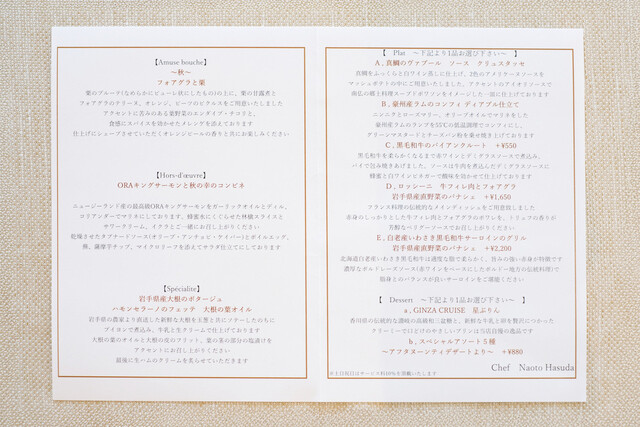 【Amuse bouche】
～秋～
フォアグラと栗
栗のブルーテ(なめらかにピューレ状にしたもの)の上に、栗の甘露煮と
フォアグラのテリーヌ、オレンジ、ビーツのピクルスをご用意いたしました
アクセントに苦みのある葉野菜のエンダイブ・チコリと、
食感にスパイスを効かせたメレンゲを添えております
仕上げにシェーブさせていただくオレンジピールの香りと共にお楽しみください
【Hors-d'œuvre】
ORAキングサーモンと秋の幸のコンビネ
ニュージーランド産の最高級ORAキングサーモンをガーリックオイルとディル、
コリアンダーでマリネにしております。蜂蜜水にくぐらせた林檎スライスと
サワークリーム、イクラとご一緒にお召し上がりください
乾燥させたタプナードソース(オリーブ・アンチョビ・ケイパー)とボイルエッグ、
蕪、薩摩芋チップ、マイクロリーフを添えてサラダ仕立てにしております
【Spécialité】
岩手県産大根のポタージュ
ハモンセラーノのフェッテ　大根の葉オイル
岩手県の農家より直送した新鮮な大根を玉葱と共にソテーしたのちに
ブイヨンで煮込み、牛乳と生クリームで仕上げております
大根の葉のオイルと大根の皮のフリット、葉の茎の部分の塩漬けを
アクセントにお召し上がりください
最後に生ハムのクリームを炙らせていただきます
【　Plat　～下記より1品お選び下さい～　】
A，真鯛のヴァプール　ソース　クリュスタッセ
真鯛をふっくらと白ワイン蒸しに仕上げ、2色のアメリケーヌソースを
マッシュポテトの中にご用意いたしました。アクセントのアイオリソースで
南仏の郷土料理スープドポワソンをイメージした一皿に仕上げております
B，豪州産ラムのコンフィ ディアブル仕立て
ニンニクとローズマリー、オリーブオイルでマリネをした
豪州産ラムのランプを55℃の低温調理でコンフィにし、
グリーンマスタードとチーズパン粉を乗せ焼き上げております
C，黒毛和牛のパイアンクルート　+¥550
黒毛和牛を柔らかくなるまで赤ワインとデミグラスソースで煮込み、
パイで包み焼きあげました。ソースは牛肉を煮込んだデミグラスソースに
蜂蜜と白ワインビネガーで酸味を効かせて仕上げております
D，ロッシーニ　牛フィレ肉とフォアグラ
岩手県産直野菜のパナシェ　+¥1,650
フランス料理の伝統的なメインディッシュをご用意致しました
赤身のしっかりとした牛フィレ肉とフォアグラのポワレを、トリュフの香りが
芳醇なペリグーソースでお召し上がりください
E，白老産いわさき黒毛和牛サーロインのグリル
岩手県産直野菜のパナシェ　+¥2,200
北海道白老産いわさき黒毛和牛は適度な脂で柔らかく、旨みの強い赤身が特徴です
濃厚なボルドレーズソース(赤ワインをベースにしたボルドー地方の伝統料理)で
脂身とのバランスが良いサーロインをご堪能ください
【　Dessert　～下記より1品お選び下さい～　】
a，GINZA CRUISE　星ぷりん
香川県の伝統的な讃岐の高級和三盆糖と、新鮮な牛乳と卵を贅沢につかった
クリーミーで口どけのやさしいプリンは当店自慢の逸品です
b，スペシャルアソート５種
～アフタヌーンティデザートより～　+¥880
Chef　Naoto Hasuda
※土日祝日はサービス料10％を頂戴いたします